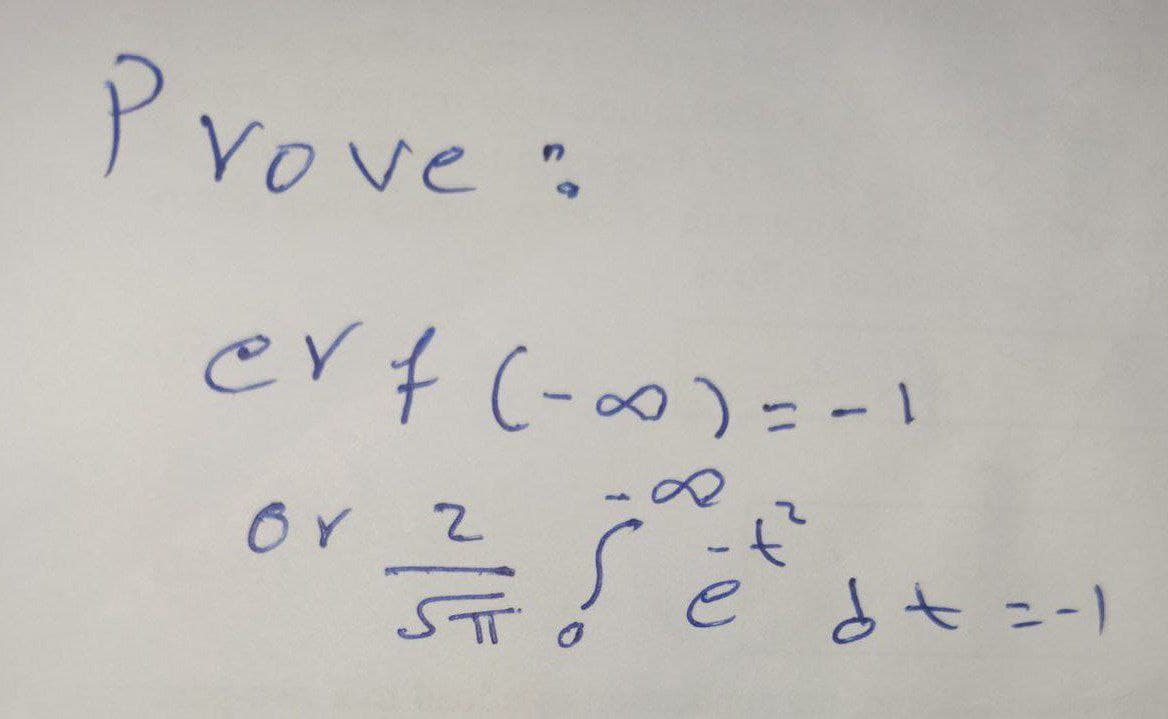 Prove:
erf(-∞) = -1
or 2/√π ∫₀^-∞ e^-t² dt = -1